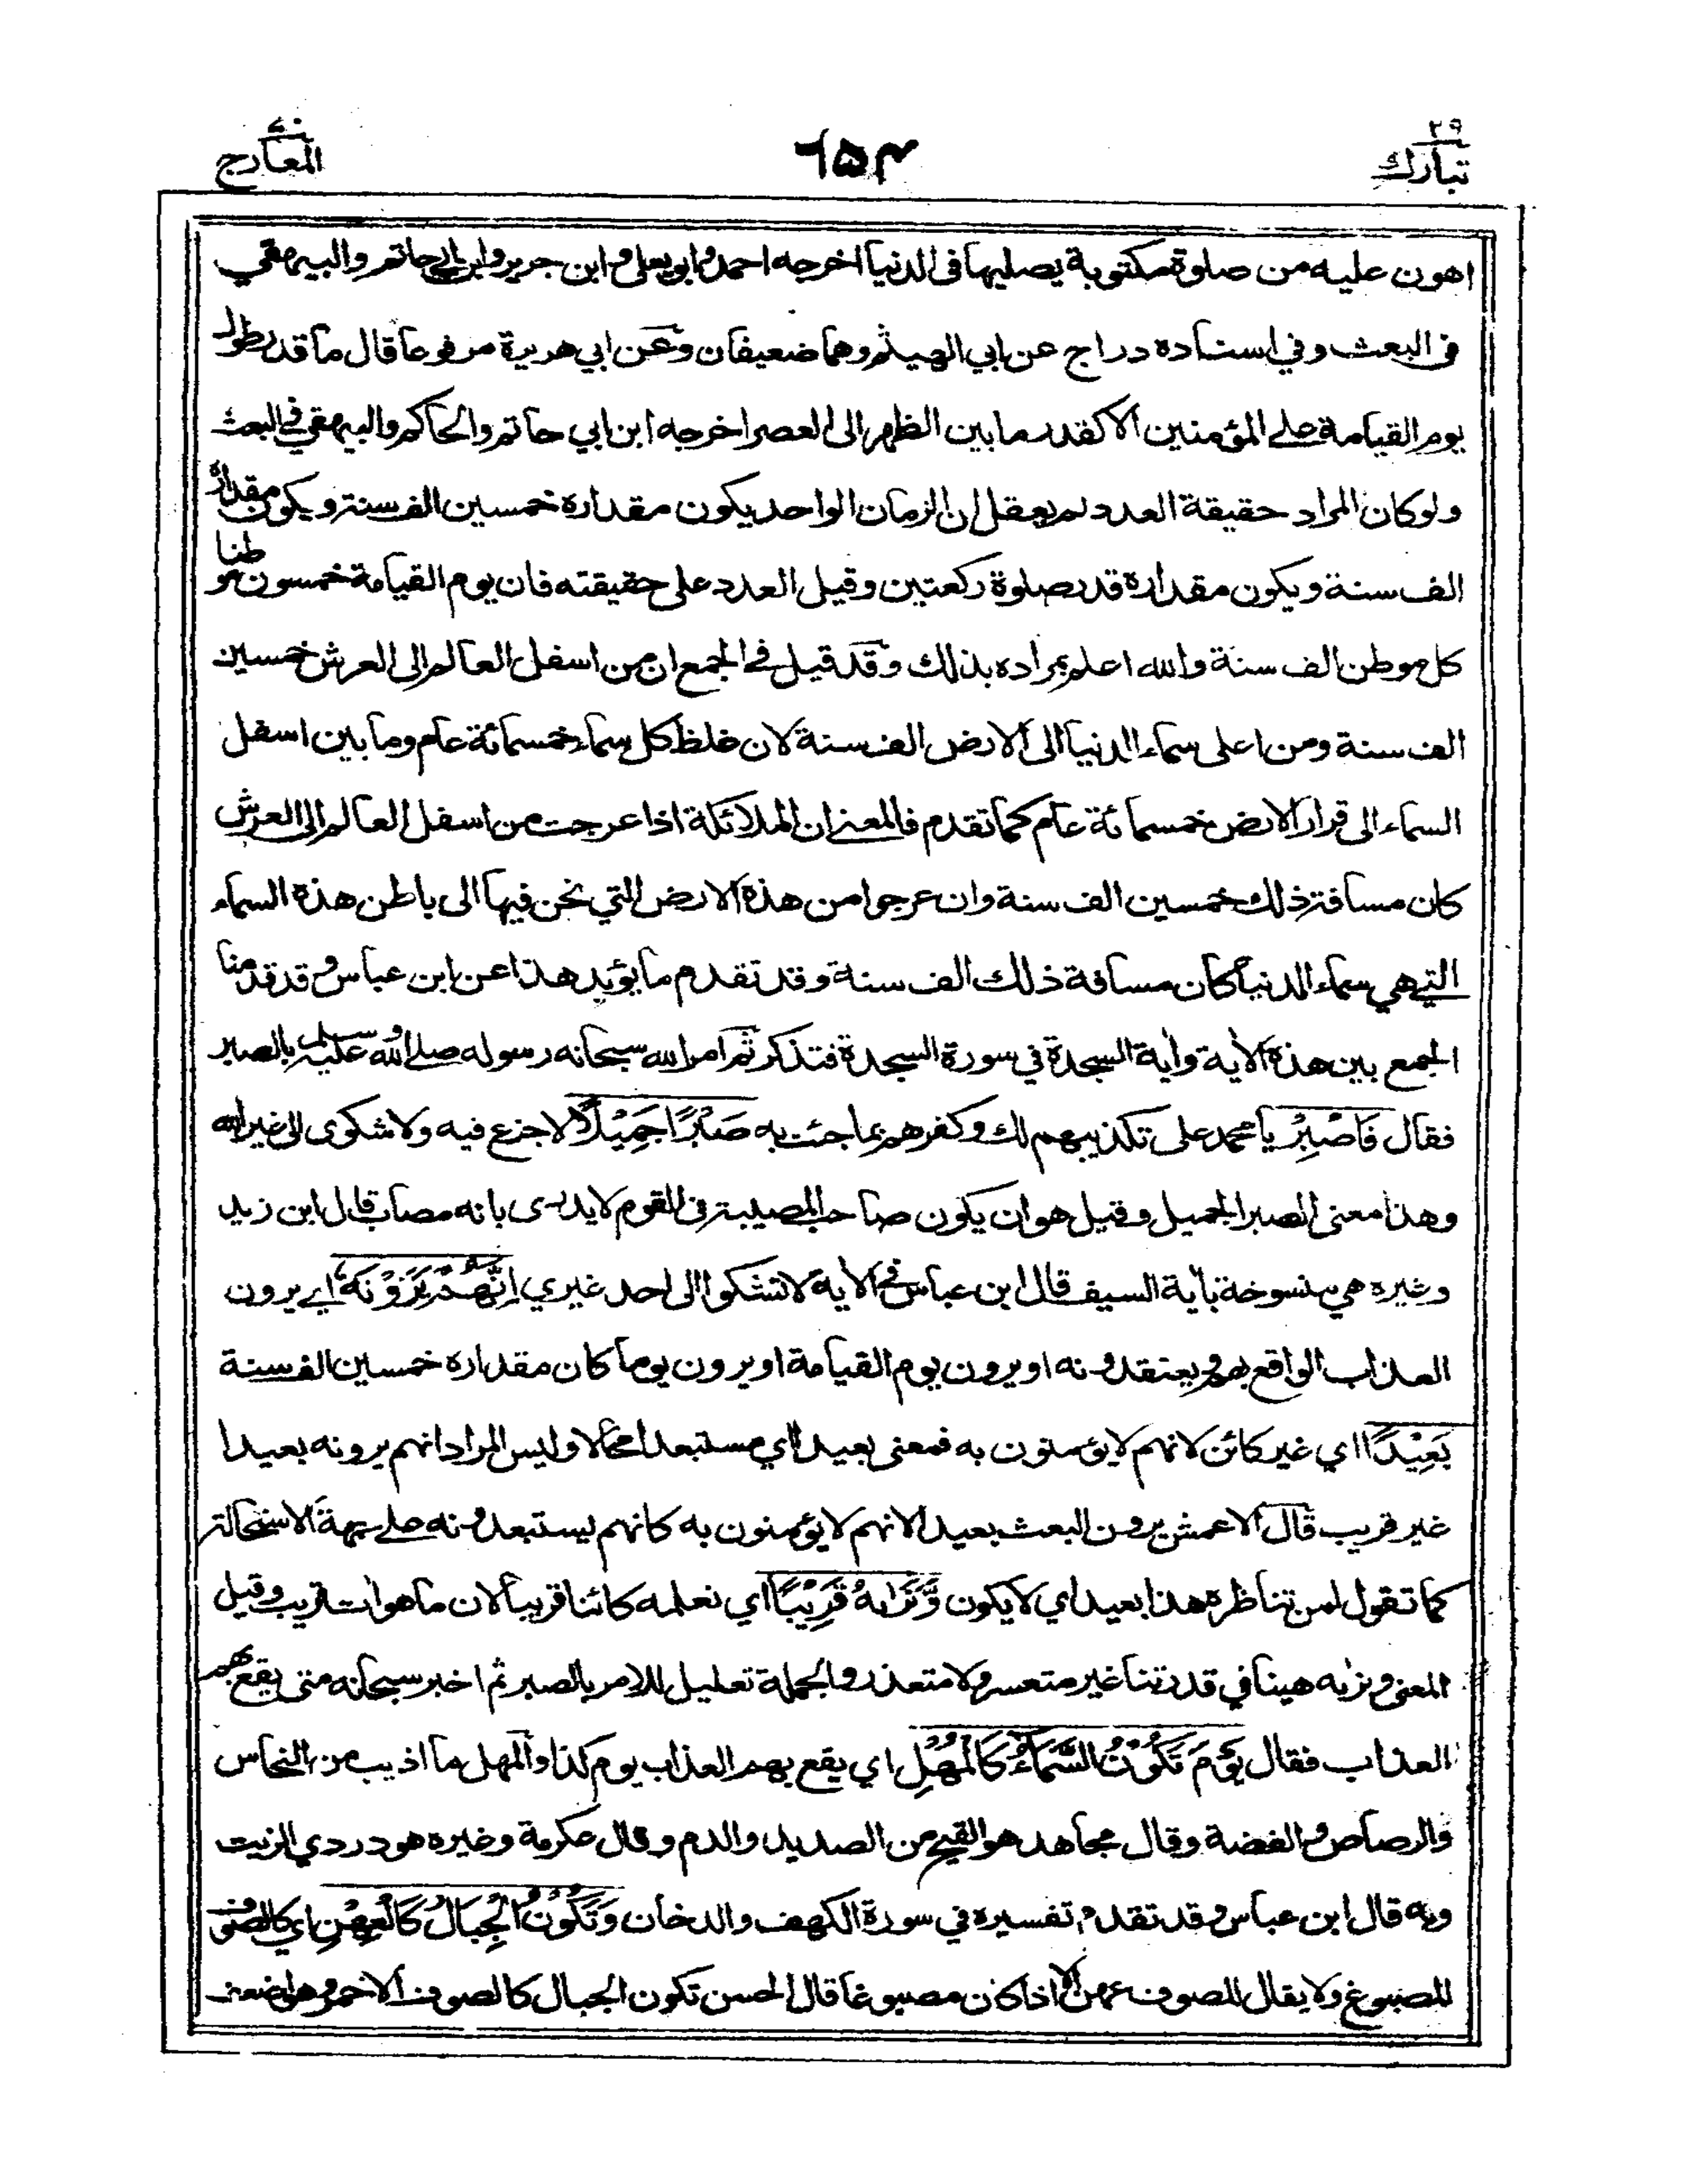 ٢٩
تبارك
٦٥٤
٧٠
المعارج
اهون عليه من صلوة مكتوبة يصليها فى الدنيا اخرجه احمد وابو يعلى وابن جرير وابن ابي حاتم والبيهقي
فى البعث وفي اسناده دراج عن ابي الهيثم وهما ضعيفان وعن ابي هريرة مرفوعا قال ما قدر طول
يوم القيامة على المؤمنين الا كقدر ما بين الظهر الى العصر اخرجه ابن ابي حاتم والحاكم والبيهقي في البعث
ولو كان المراد حقيقة العدد لم يعقل ان الزمان الواحد يكون مقداره خمسين الف سنة ويكون مقداره
الف سنة ويكون مقداره قدر صلوة ركعتين وقيل العدد على حقيقته فان يوم القيامة خمسون موطنا
كل موطن الف سنة والله اعلم بمراده بذلك وقد قيل في الجمع ان من اسفل العالم الى العرش خمسين
الف سنة ومن اعلى سماء الدنيا الى الارض الف سنة لان غلظ كل سماء خمسمائة عام وما بين اسفل
السماء الى قرار الارض خمسمائة عام كما تقدم فالمعنى ان الملائكة اذا عرجت من اسفل العالم الى العرش
كان مسافة ذلك خمسين الف سنة وان عرجوا من هذه الارض التي نحن فيها الى باطن هذه السماء
التي هي سماء الدنيا كان مسافة ذلك الف سنة وقد تقدم ما يؤيد هذا عن ابن عباس وقد قدمنا
الجمع بين هذه الآية وآية السجدة في سورة السجدة فتذكر ثم امر الله سبحانه رسوله صلى الله عليه وسلم بالصبر
فقال فَاصْبِرْ يا محمد على تكذيبهم لك وكفرهم بما جئت به صَبْرًا جَمِيْلًا لا جزع فيه ولا شكوى الى غير الله
وهذا معنى الصبر الجميل وقيل هو ان يكون صاحب المصيبة فى القوم لا يدرى بانه مصاب قال ابن زيد
وغيره هي منسوخة بآية السيف قال ابن عباس في الآية لا تشكوا الى احد غيري اِنَّهُمْ يَرَوْنَهُ اي يرون
العذاب الواقع بهم ويعتقدونه او يرون يوم القيامة او يرون يوما كان مقداره خمسين الف سنة
بَعِيْدًا اي غير كائن لانهم لا يؤمنون به فمعنى بعيدا اي مستبعدا محالا وليس المراد انهم يرونه بعيدا
غير قريب قال الاعمش يرون البعث بعيدا لانهم لا يؤمنون به كانهم يستبعدونه على جهة الاستحالة
كما تقول لمن تناظره هذا بعيد اي لا يكون وَّنَرٰىهُ قَرِيْبًا اي نعلمه كائنا قريبا لان ما هو ات قريب وقيل
المعنى ونراه هينا في قدرتنا غير متعسر ولا متعذر والجملة تعليل للامر بالصبر ثم اخبر سبحانه متى يقع بهم
العذاب فقال يَوْمَ تَكُوْنُ السَّمَاءُ كَالْمُهْلِ اي يقع بهم العذاب يوم كذا والمهل ما اذيب من النحاس
والرصاص والفضة وقال مجاهد هو القيح من الصديد والدم وقال عكرمة وغيره هو دردي الزيت
وبه قال ابن عباس وقد تقدم تفسيره في سورة الكهف والدخان وَتَكُوْنُ الْجِبَالُ كَالْعِهْنِ اي كالصوف
المصبوغ ولا يقال للصوف عهن الا اذا كان مصبوغا قال الحسن تكون الجبال كالصوف الاحمر وهو اضعف